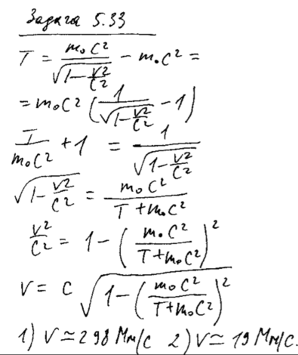 Задача 5.33
T = m₀c²/√(1-v²/c²) - m₀c² =
= m₀c² (1/√(1-v²/c²) - 1)
T/m₀c² + 1 = 1/√(1-v²/c²)
√(1-v²/c²) = m₀c²/(T+m₀c²)
v²/c² = 1 - (m₀c²/(T+m₀c²))²
v = c √(1-(m₀c²/(T+m₀c²))²)
1) v ≃ 298 Мм/с 2) v ≃ 19 Мм/с.